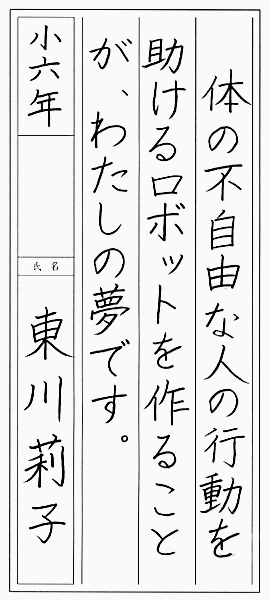 体の不自由な人の行動を
助けるロボットを作ること
が、わたしの夢です。
小六年
氏名
東川莉子